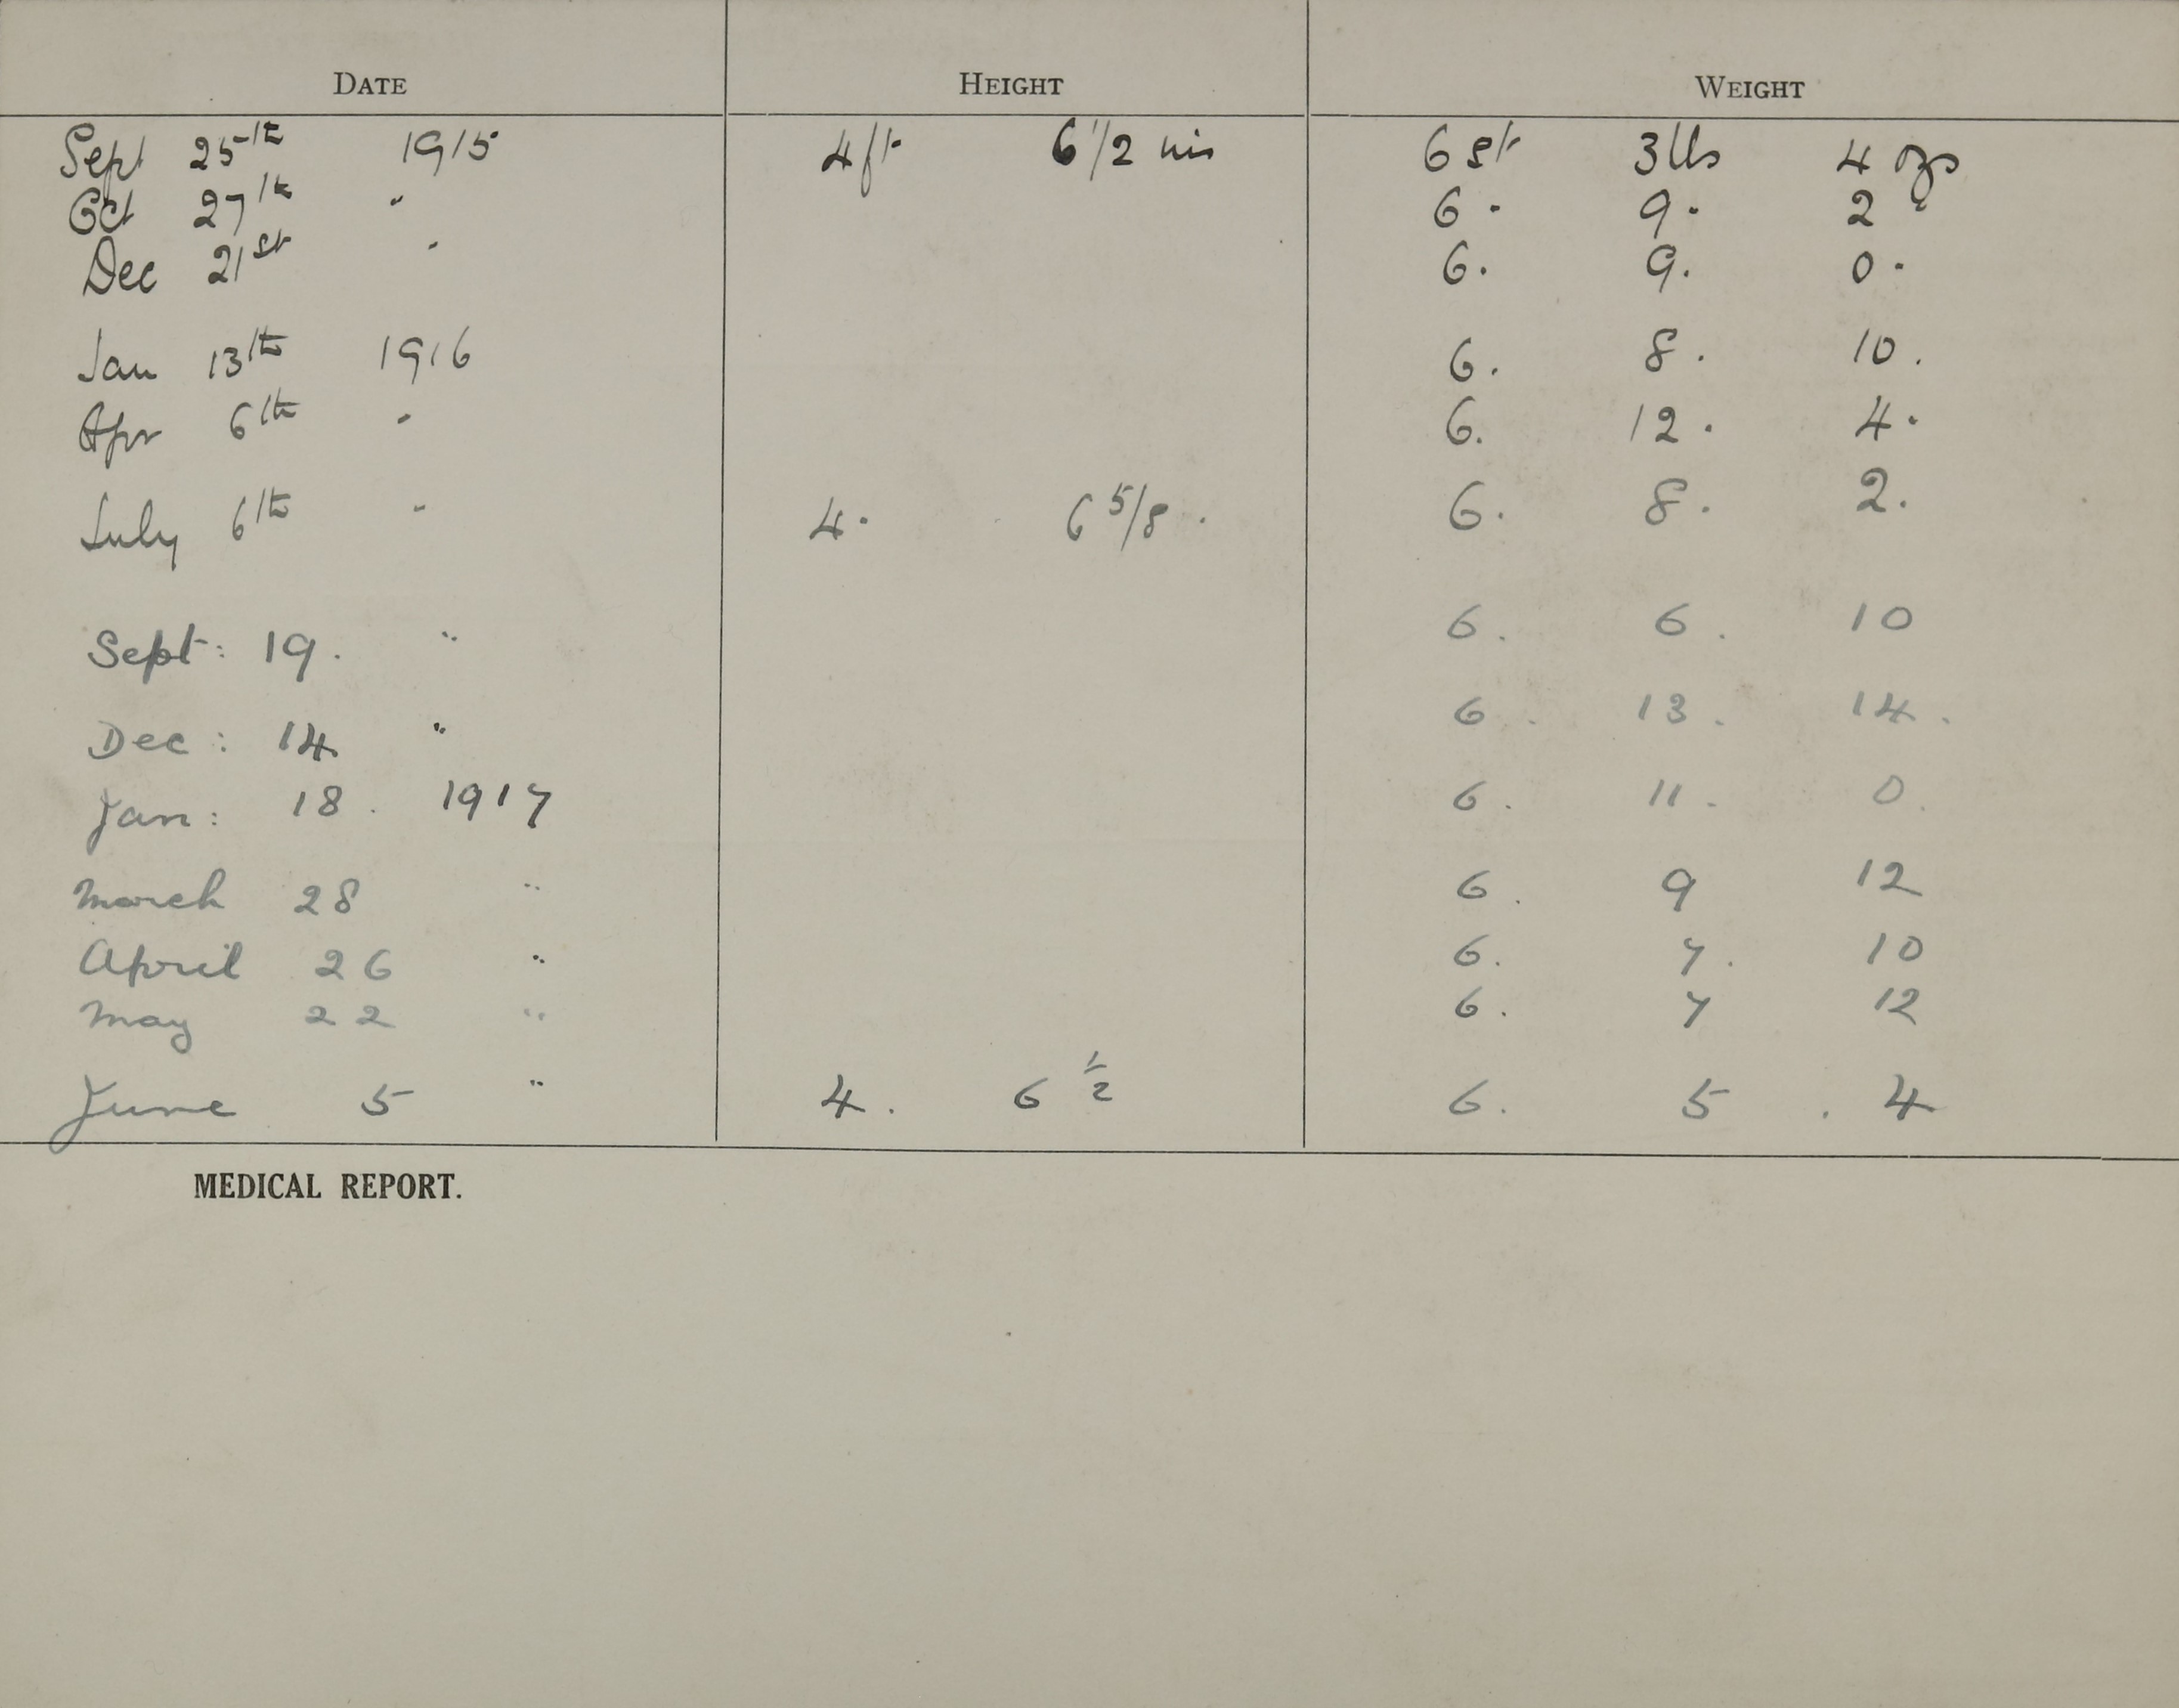 DATE HEIGHT WEIGHT
Sept 25th 1915 4ft 6 1/2 ins 6 st 3 lbs 4 ozs
Oct 27th " 6 . 9 . 2 "
Dec 21st " 6 . 9 . 0 .
Jan 13th 1916 6 . 8 . 10 .
Apr 6th " 6 . 12 . 4 .
July 6th " 4 . 6 5/8 . 6 . 8 . 2 .
Sept: 19 . " 6 . 6 . 10
Dec: 14 " 6 . 13 . 14 .
Jan: 18 . 1917 6 . 11 . 0 .
March 28 " 6 . 9 12
April 26 " 6 . 7 . 10
May 22 " 6 . 7 12
June 5 " 4 . 6 1/2 6 . 5 . 4
MEDICAL REPORT.